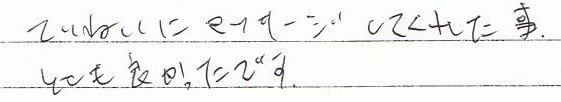 ていねいにマッサージしてくれた事.
とても良かったです.